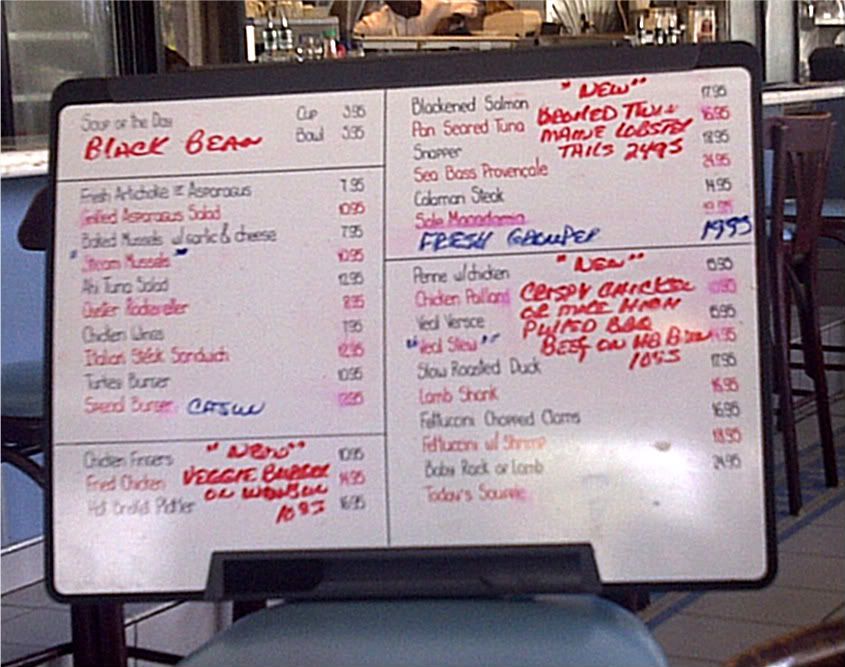 Soup of the Day Cup 3.95
BLACK BEAN Bowl 5.95
Fresh Artichoke Asparagus 7.95
Grilled Asparagus Salad 10.95
Baked Mussels w/garlic & cheese 7.95
"Steam Mussels" 10.95
Ahi Tuna Salad 12.95
Oyster Rockefeller 8.95
Chicken Wings 7.95
Italian Steak Sandwich 12.95
Turkey Burger 10.95
Special Burger CAJUN 12.95
Chicken Fingers "NEW" 10.95
Fried Chicken VEGGIE BURGER 14.95
Platter ON 16.95
Blackened Salmon "NEW" 17.95
Pan Seared Tuna BROILED TWIN 16.95
Snapper MAINE LOBSTER 18.95
TAILS 2495
Sea Bass Provençale 24.95
Coloman Steak 14.95
Sole Macadamia
FRESH GROUPER 1995
Penne w/chicken "NEW" 15.95
Chicken Paillard CRISPY CHICKEN
OR
Veal Versace PULLED BBQ 15.95
"Veal Stew" BEEF ON 14.95
1095
Slow Roasted Duck 17.95
Lamb Shank 16.95
Fettuccini Chopped Clams 16.95
Fettuccini w/Shrimp 18.95
Baby Rack of Lamb 24.95
Today's